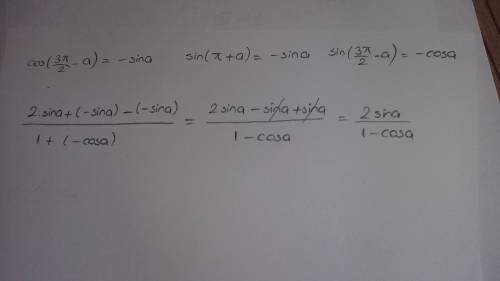 cos(3π/2 - a) = -sina sin(π+a) = -sina sin(3π/2 - a) = -cosa
(2.sina+(-sina)-(-sina))/(1+(-cosa)) = (2sina-sina+sina)/(1-cosa) = 2sina/(1-cosa)